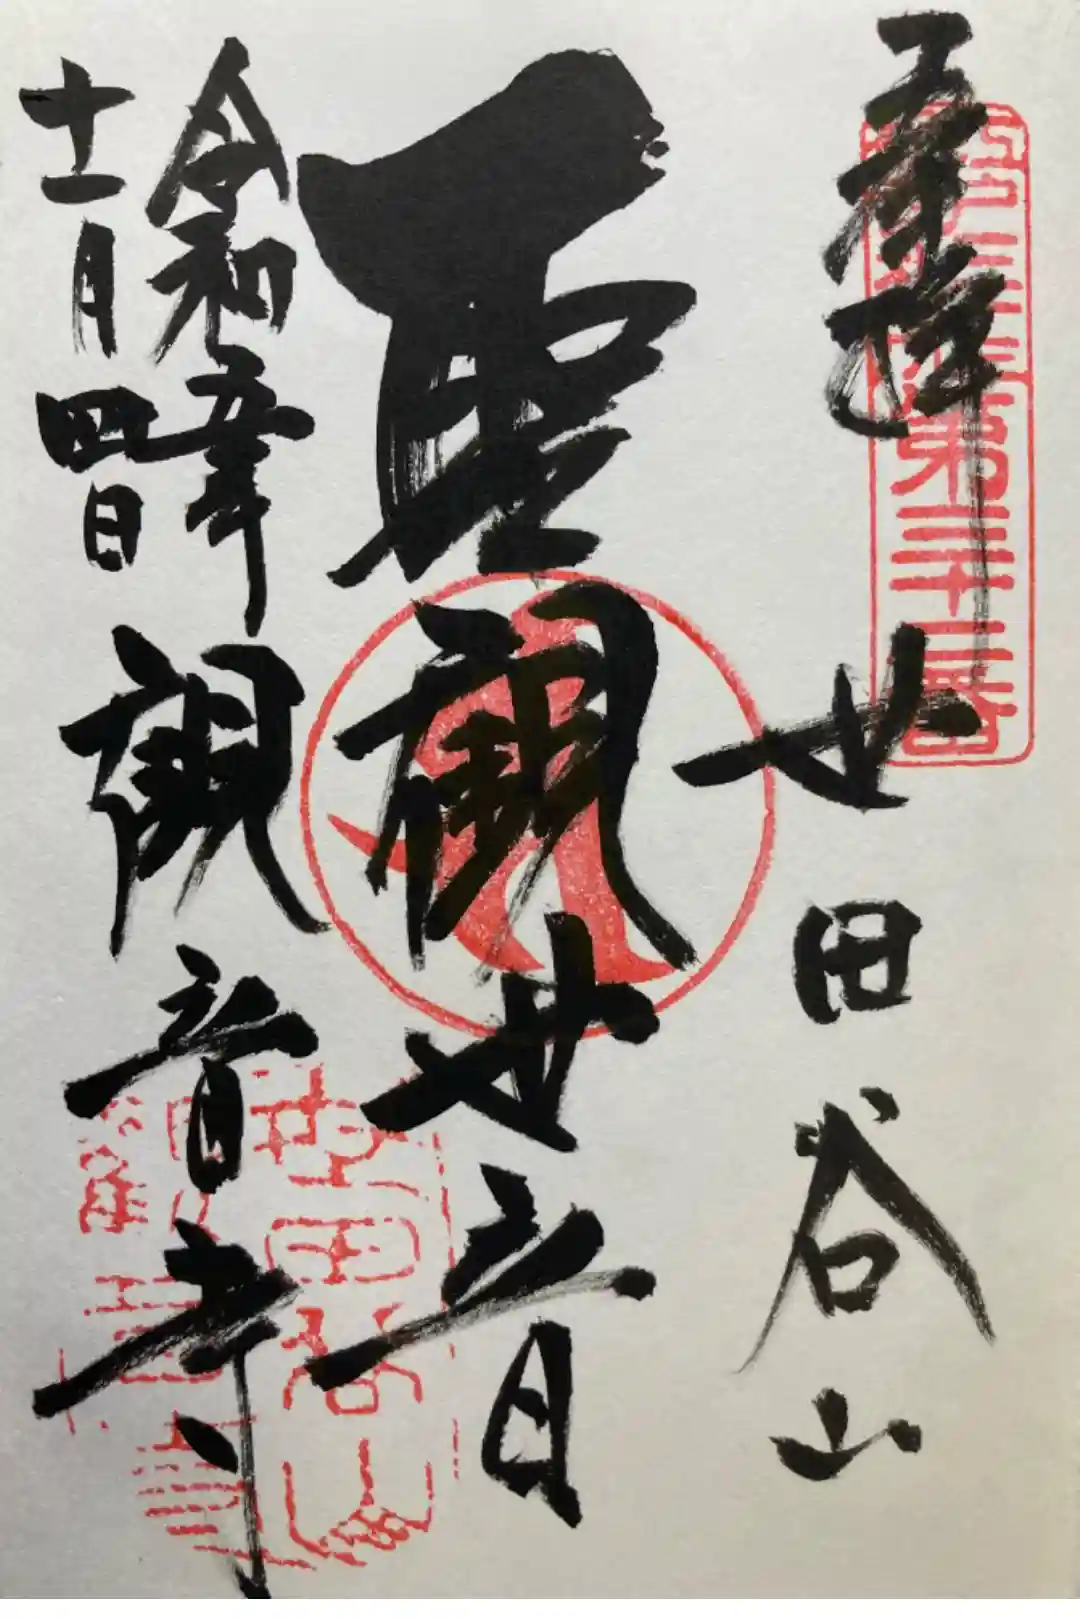 奉拝
世田谷山
聖観世音
令和五年
十一月四日
観音寺
第三十二番
世田谷山